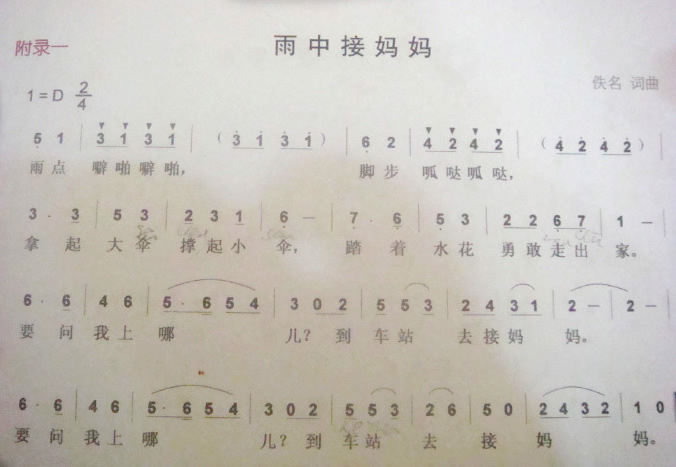 附录一
雨中接妈妈
佚名 词曲
1=D 2/4
5 1 | 3 1 3 1 | (3 1 3 1) | 6 2 | 4 2 4 2 | (4 2 4 2) |
雨点 噼啪噼啪, 脚步 呱哒呱哒,
3 · 3 | 5 3 | 2 3 1 | 6 – | 7 · 6 | 5 3 | 2 2 6 7 | 1 – |
拿起大伞撑起小伞, 踏着水花勇敢走出家。
6 · 6 | 4 6 | 5 · 6 5 4 | 3 0 2 | 5 5 3 | 2 4 3 1 | 2 – | 2 – |
要问我上哪儿? 到车站去接妈妈。
6 · 6 | 4 6 | 5 · 6 5 4 | 3 0 2 | 5 5 3 | 2 6 | 5 0 | 2 4 3 2 | 1 0
要问我上哪儿? 到车站去接妈妈。